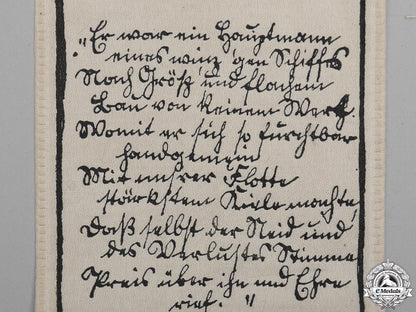 „Er war ein Hauptmann
eines winz'gen Schiffes
Nach Größ' und flachem
Bau von keinem Wert.
Womit er sich so furchtbar
handgemein
Mit unsrer Flotte
stärkstem Kiele machte,
Daß selbst der Neid und
des Verlustes Stimme
Preis über ihn und Ehre
rief."
eMedals